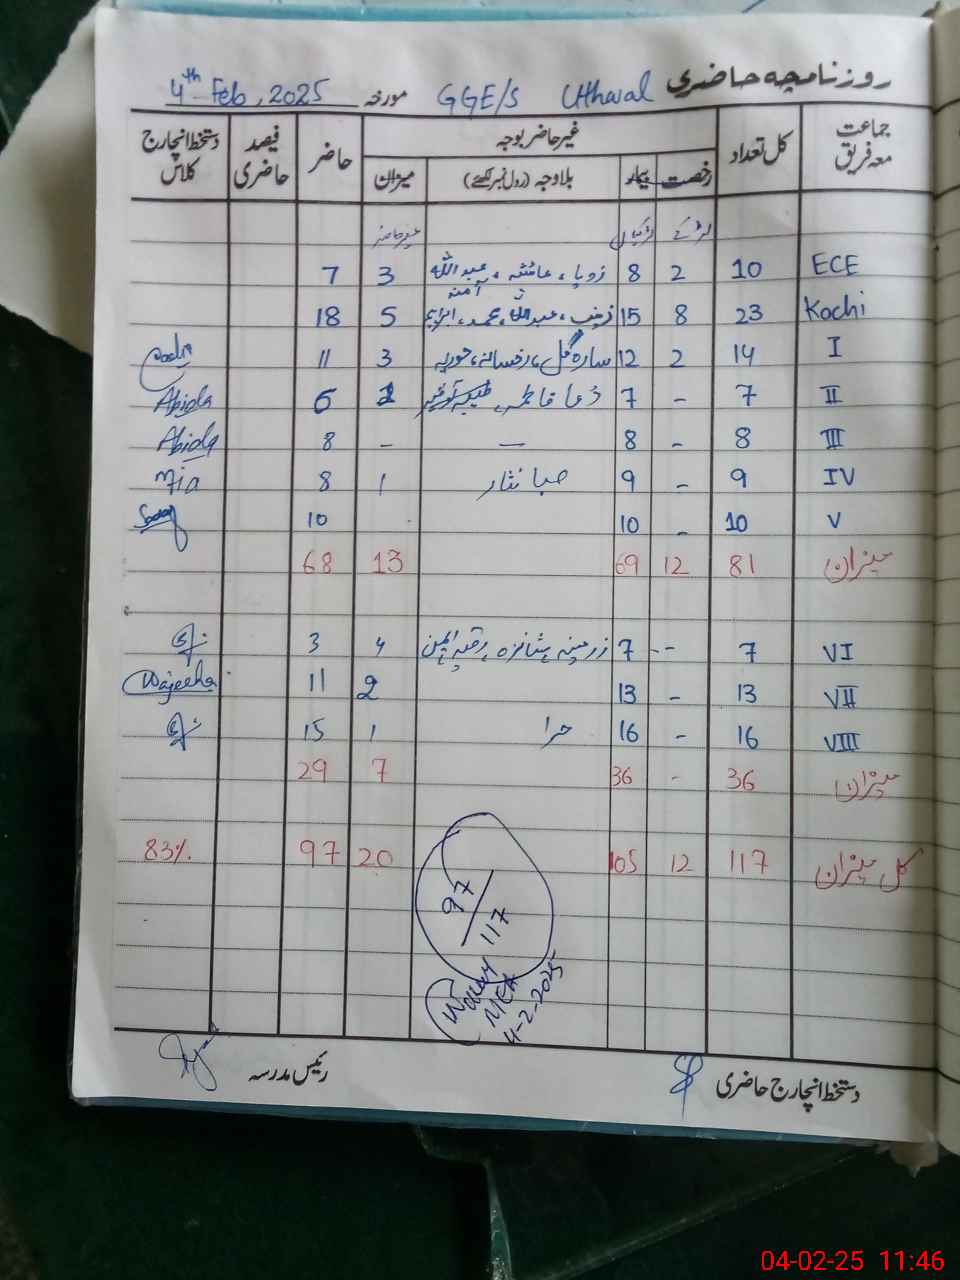 روزنامچہ حاضری GGE/S Uthaval مورخہ 4th Feb, 2025
جماعت معہ فریق کل تعداد غیر حاضر بوجہ حاضر فیصد حاضری دستخط انچارج کلاس
رخصت بیمار بلاوجہ (رول نمبر لکھئے) میزان
لڑکے لڑکیاں غیر حاضر
ECE 10 2 8 زویا، عائشہ، عبداللہ 3 7
آمنہ
Kachi 23 8 15 زینب، عبداللہ، محمد، ابراہیم 5 18
I 14 2 12 سارہ گل، رخسانہ، حوریہ 3 11
II 7 - 7 دعا فاطمہ 1 6 Abida
III 8 - 8 — - 8 Abida
IV 9 - 9 صبا نثار 1 8
V 10 - 10 10
میزان 81 12 69 13 68
VI 7 -- 7 زرمینہ، شانزہ، رقیہ، ایمن 4 3
VII 13 - 13 2 11 Wajeeha
VIII 16 - 16 حرا 1 15
میزان 36 - 36 7 29
کل میزان 117 12 105 20 97 83%
97
117
MEA
4-2-2025
دستخط انچارج حاضری رئیس مدرسہ
04-02-25 11:46